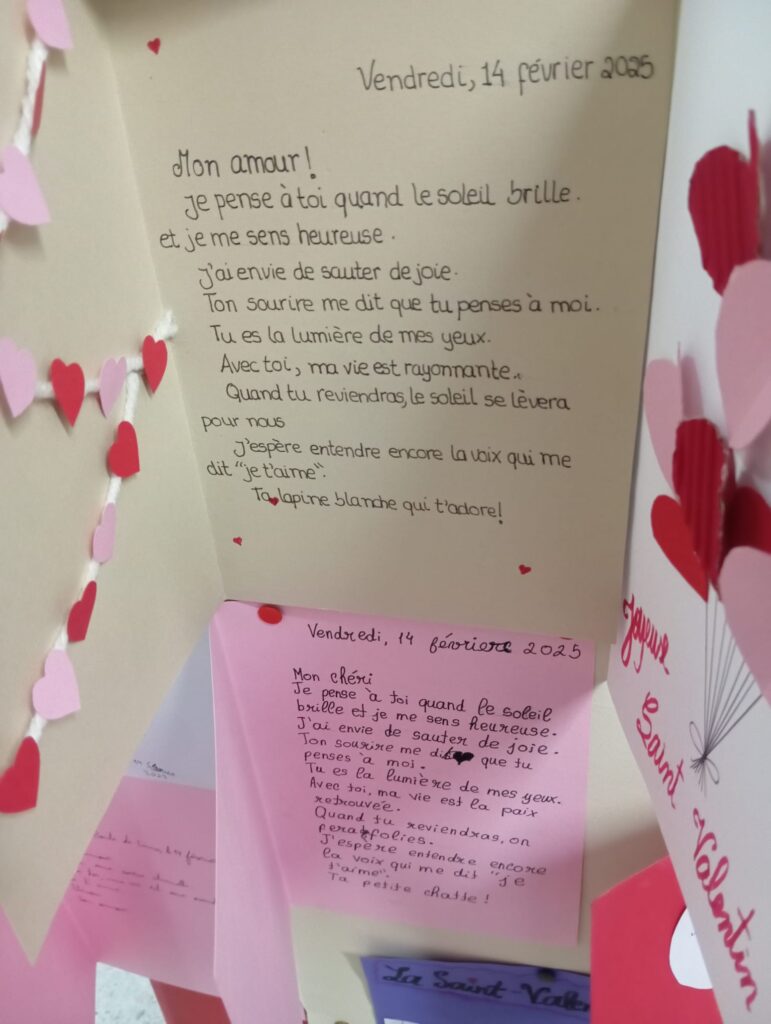 Vendredi, 14 février 2025
Mon amour!
Je pense à toi quand le soleil brille.
et je me sens heureuse.
J'ai envie de sauter de joie.
Ton sourire me dit que tu penses à moi.
Tu es la lumière de mes yeux.
Avec toi, ma vie est rayonnante..
Quand tu reviendras, le soleil se lèvera
pour nous
J'espère entendre encore la voix qui me
dit "je t'aime".
Ta lapine blanche qui t'adore!
Vendredi, 14 févriere 2025
Mon chéri
Je pense à toi quand le soleil
brille et je me sens heureuse.
J'ai envie de sauter de joie.
Ton sourire me dit que tu
penses à moi.
Tu es la lumière de mes yeux.
Avec toi, ma vie est la paix
retrouvée.
Quand tu reviendras, on
folies.
J'espère entendre encore
la voix qui me dit "je
t'aime".
Ta petite chatte!
Joyeuse
Saint
Valentin
La Saint-Valen